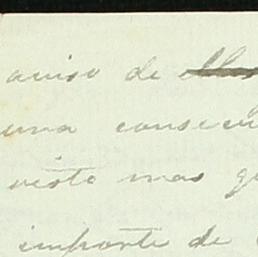 aviso de
una consecu
visto mas q
importe de